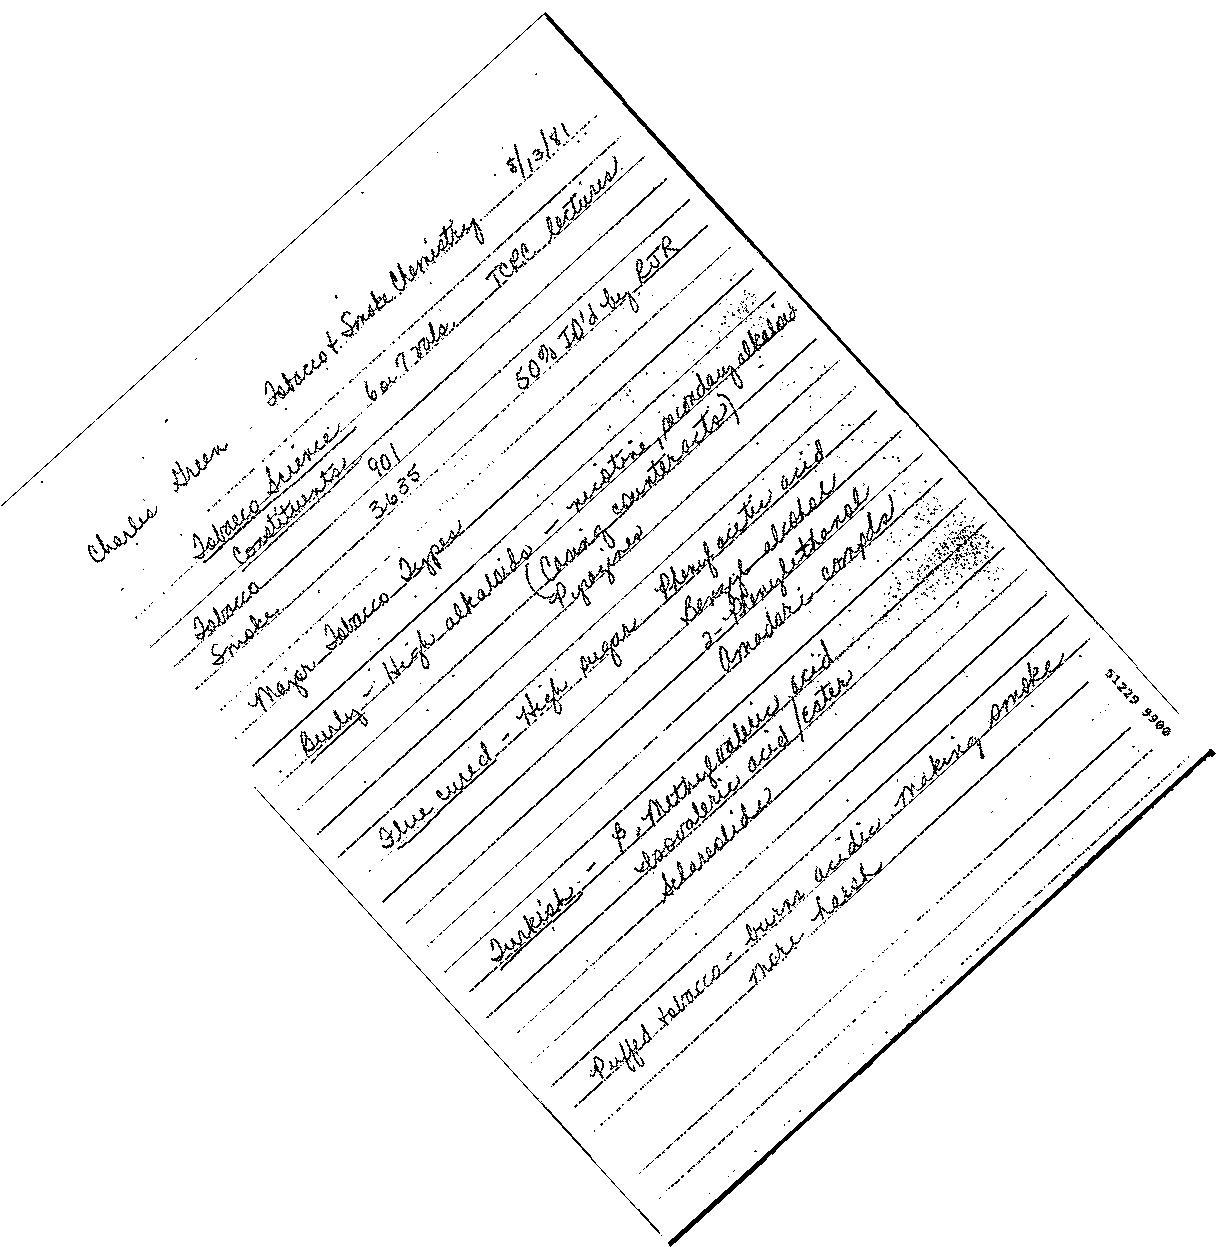 Charles Green Tobacco & Smoke Chemistry 8/13/81
Tobacco Science 6 or 7 vols. TCRC lectures
Constituents
Tobacco 901 50% ID'd by RJR
Smoke 3635
Major Tobacco Types
Burly - High alkaloids - nicotine, secondary alkaloids
(Casing counteracts)
Pyrazines
Flue cured - High sugar Phenylacetic acid
Benzyl alcohol
2-Phenylethanol
Amadori compds
Turkish - β-Methylvaleric acid
Isovaleric acid/ester
Sclareolide
Puffed tobacco - burns acidic making smoke
more harsh
51229 9900